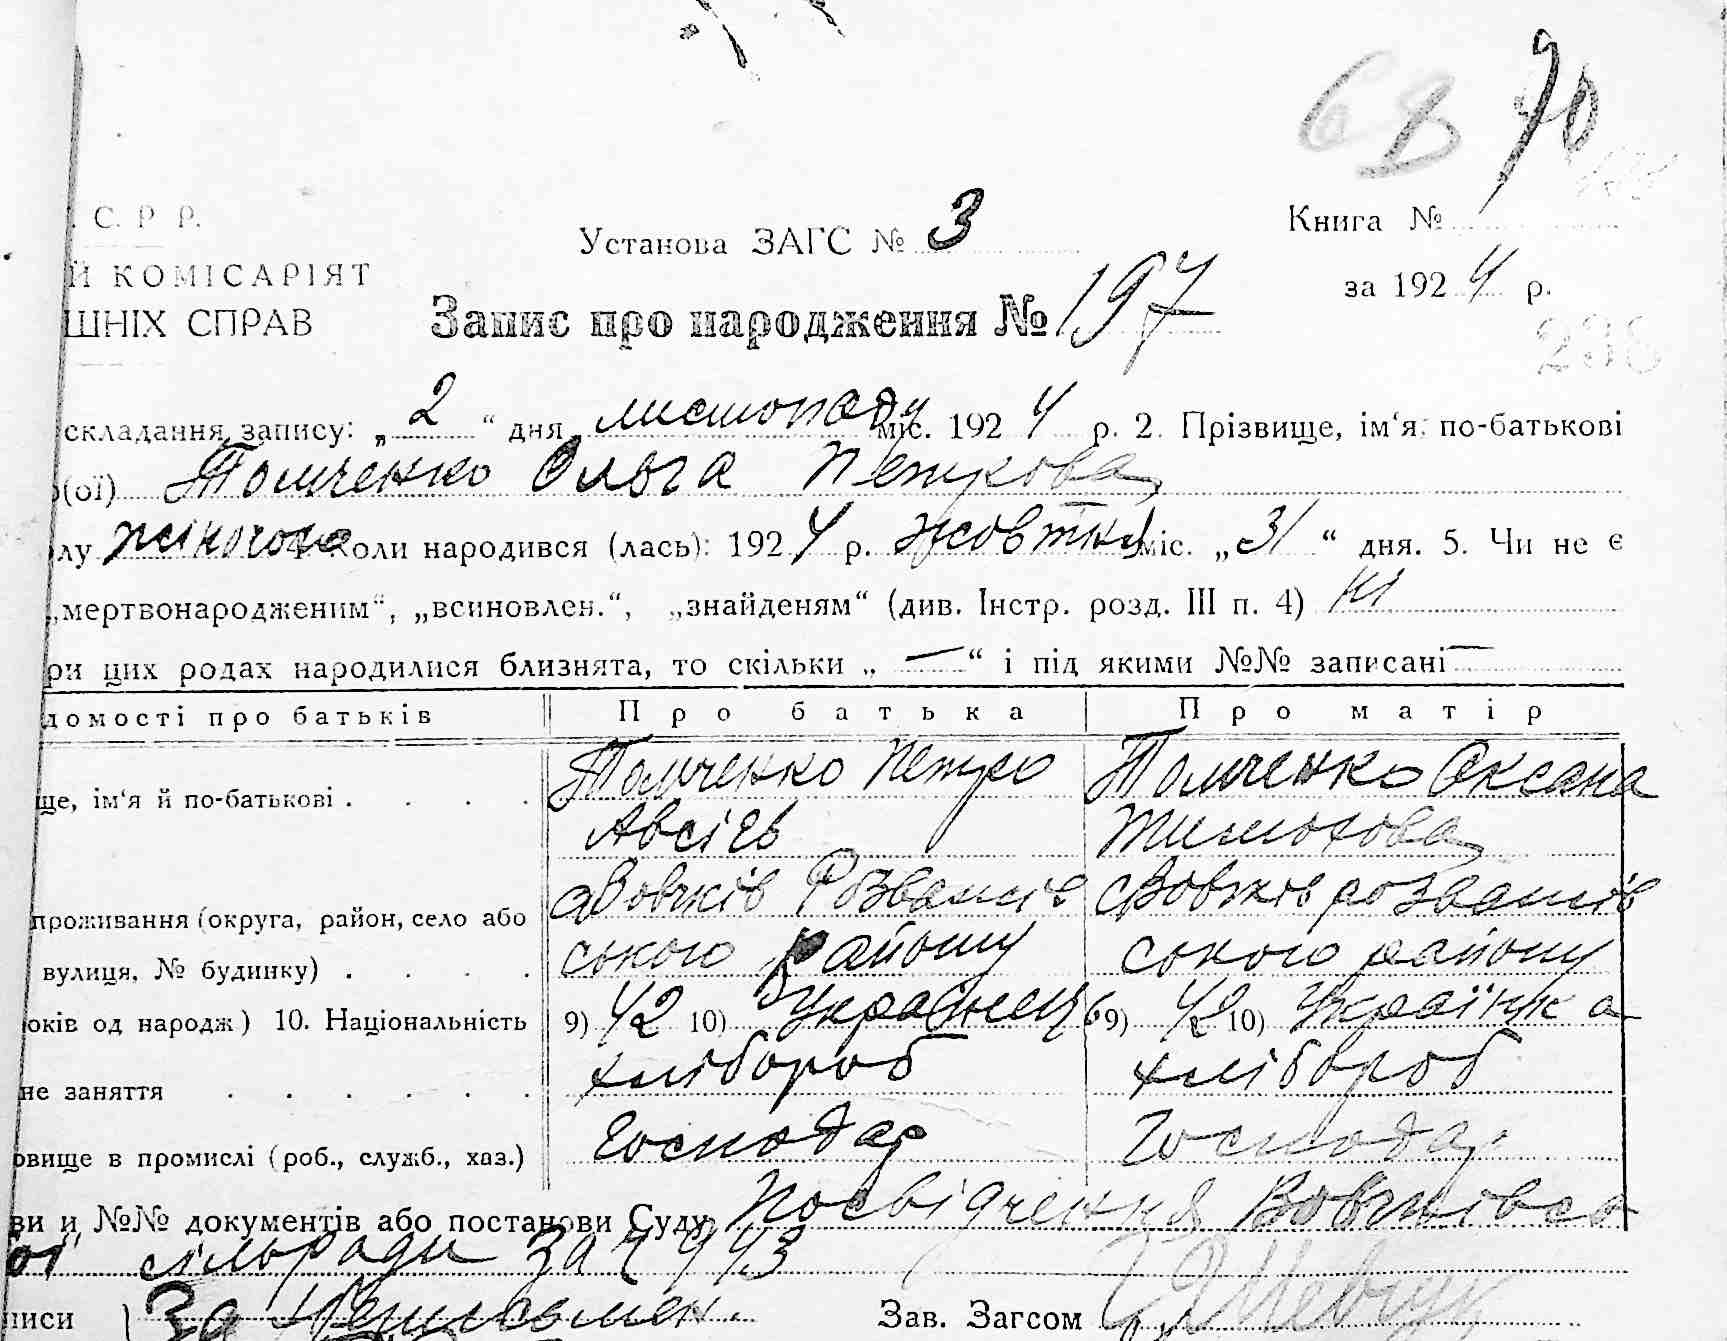 70
С. Р. Р.
Установа ЗАГС № 3
Книга №
Й КОМІСАРІЯТ
за 1924 р.
ШНІХ СПРАВ
Запис про народження № 197
238
складання запису: „2“ дня листопаду міс. 1924 р. 2. Прізвище, ім‘я по-батькові
(ої) Томченко Ольга Петрова
лу жіночого 4. Коли народився (лась): 1924 р. жовтня міс. „31“ дня. 5. Чи не є
„мертвонародженим“, „всиновлен.“, „знайденям“ (див. Інстр. розд. III п. 4) ні
ри цих родах народилися близнята, то скільки „—“ і під якими №№ записані —
домості про батьків Про батька Про матір
ще, ім‘я й по-батькові . . . . Томченко Петро Томченко Оксана
Авсієв Тимохова
с Вовчків Розважів с Вовчків розважів
проживання (округа, район, село або
ського району ського району
вулиця, № будинку) . . . .
оків од народж.) 10. Національність 9) 42 10) Українець 9) 42 10) Українка
хлібороб хлібороб
не заняття . . . . . .
Господар Господар
овище в промислі (роб., служб., хаз.)
ви и №№ документів або постанови Суду Посвідчення Вовчківсь
ої сільради за
писи За Зав. Загсом Шевчук